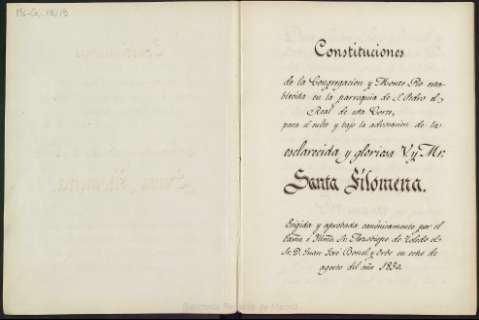 Constituciones
de la Congregacion y Monte Pio esta-
blecida en la parroquia de S. Pedro el
Real de esta Corte,
para el culto y bajo la advocacion de la
esclarecida y gloriosa V. y Mr.
Santa Filomena.
Erigida y aprobada canónicamente por el
Excmo. e Illmo. Sr. Arzobispo de Toledo el
Sr. D. Juan José Bonel y Orbe en ocho de
agosto del año 1850.
Biblioteca Regional de Madrid